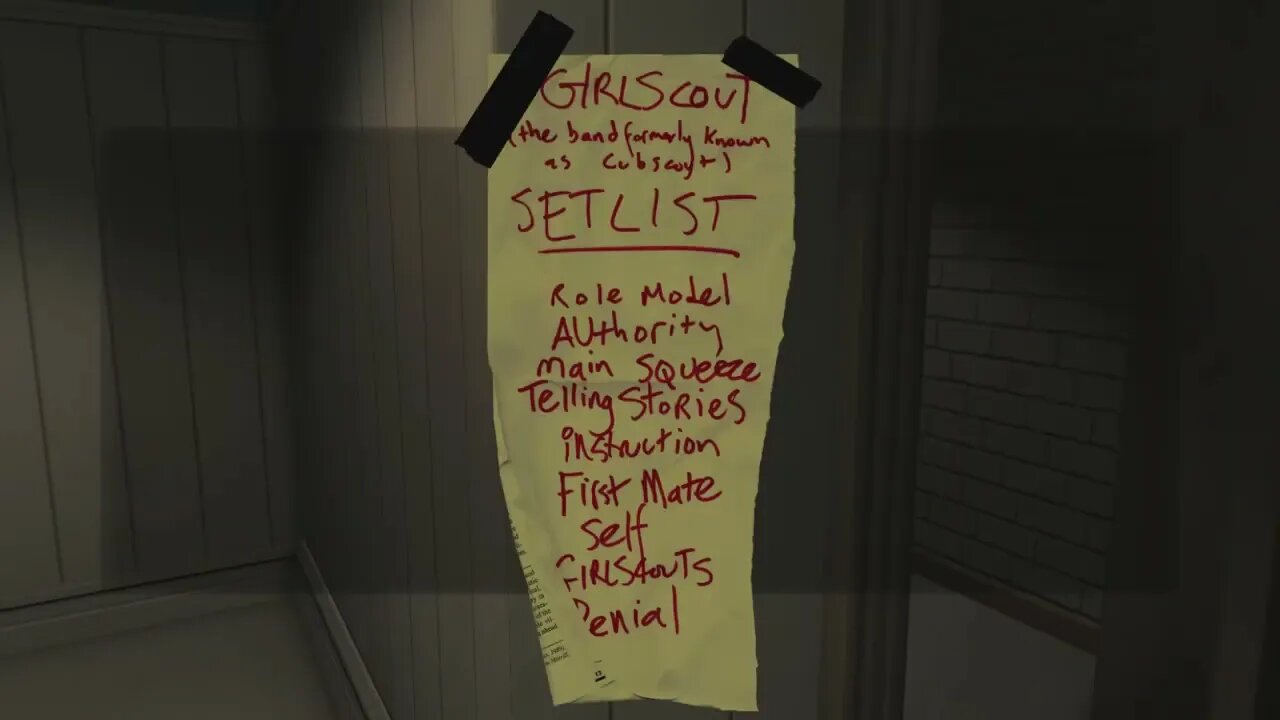 GIRLSCOUT
(the band formerly known
as Cubscout)
SETLIST
Role Model
Authority
Main Squeeze
Telling Stories
instruction
First Mate
Self
GIRLSCOUTS
Denial